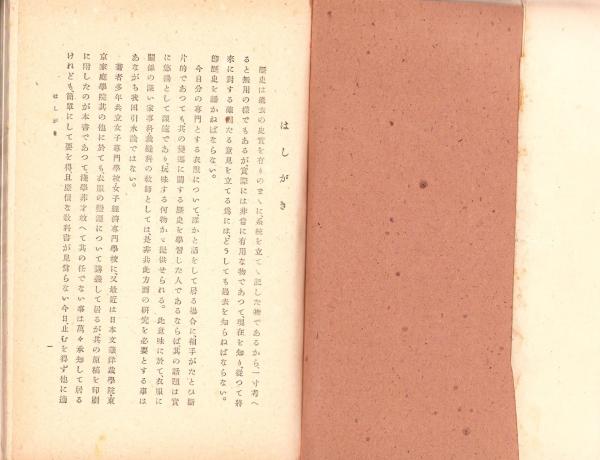 はしがき
歷史は過去の史實を有りのまゝに、系統を立てゝ記した物であるから、一寸考へ
ると無用の樣でもあるが、實際には非常に有用な物であつて、現在を知り、從つて將
來に對する確固たる意見を立てる爲には、どうしても過去を知らねばならない。
卽歷史を繙かねばならない。
今日分の專門とする衣服について、誰かと話をして居る場合に、相手がたとひ斷
片的であつても、其の變遷に關する歷史を學習した人であるならば、其の話題は實
に悠揚として深遠であり、玩味する何物かゞ提供せられる。此意味に於て、衣服に
關係の深い家事科裁縫科の敎師としては、是非共此方面の硏究を必要とする事は
あながち我田引水論ではない。
著者多年共立女子專門學校、女子經濟專門學校に、又最近は日本文化裁學院、東
京家庭學院其の他に於ても、衣服の變遷について講義して居るが、其の原稿を印刷
に附したのが本書であつて、淺學菲才敢へて其の任でない事は萬々承知して居る
けれども、簡單にして要を得、且廉價な敎科書が見當らない今日、止むを得ず他に適
はしがき
一